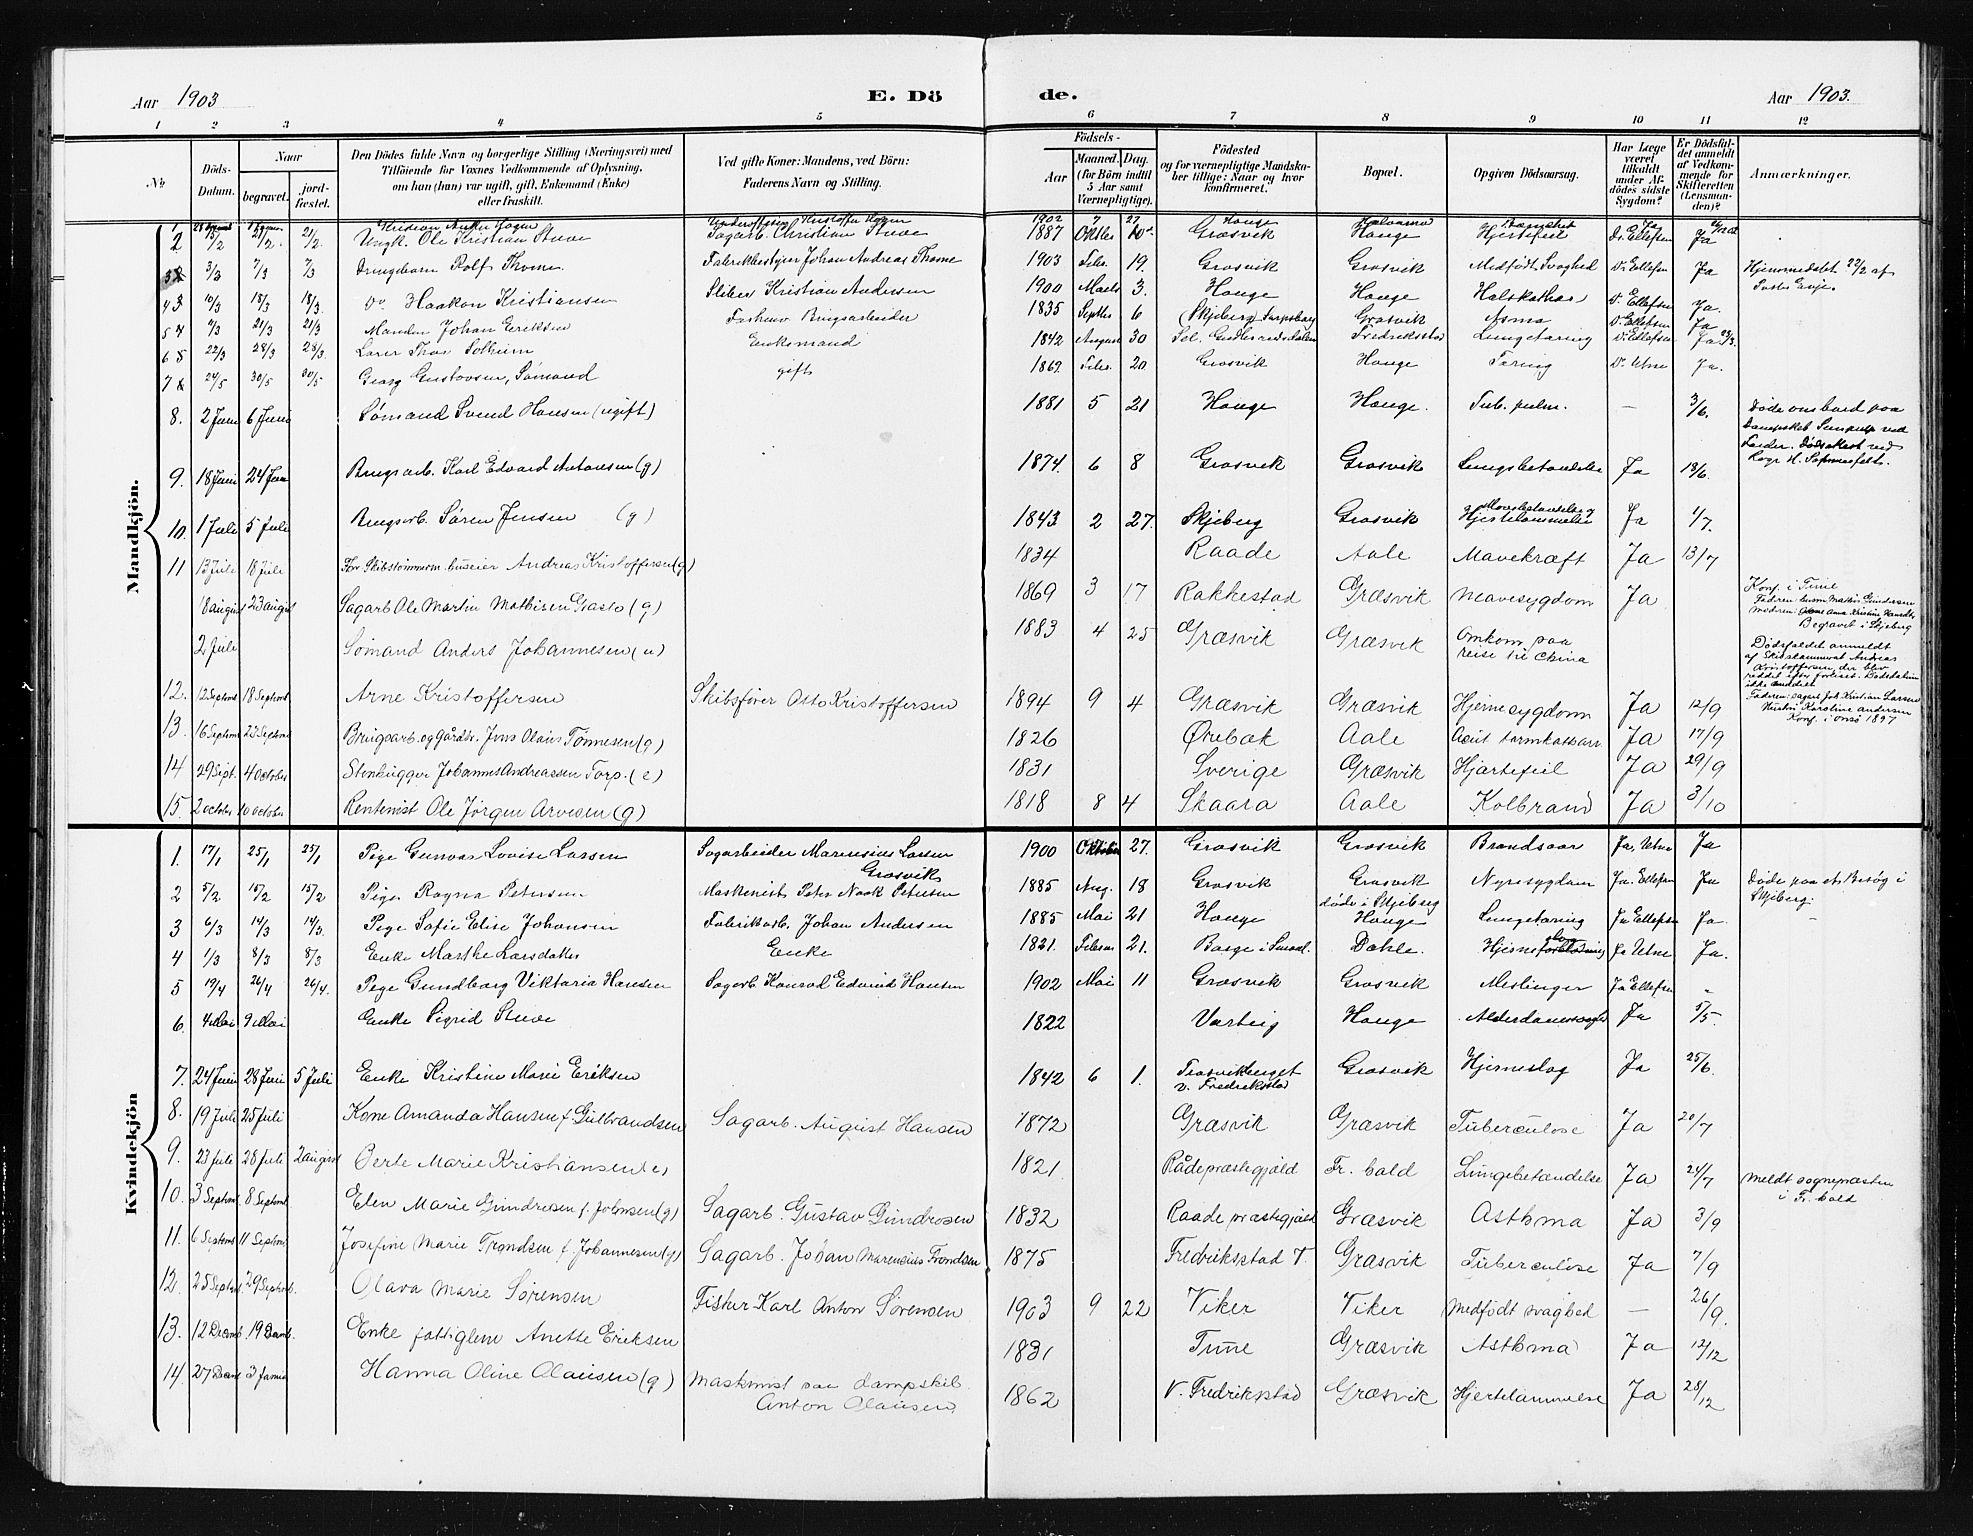 Aar 1903
E. Dö
de.
Aar 1903.
1 2 3 4 5 6 7 8 9 10 11 12
No
Döds-Datum.
Naar
begravet.
jord-fæstet.
Den Dödes fulde Navn og borgerlige Stilling (Næringsvei) med
Tilföiende for Voxnes Vedkommende af Oplysning,
om han (hun) var ugift, gift, Enkemand (Enke)
eller fraskilt.
Ved gifte Koner: Mandens, ved Börn:
Faderens Navn og Stilling.
Födsels-
Aar
Maaned. (for Börn indtil 5 Aar samt Værnepligtige).
Dag.
Födested
og for værnepligtige Mandska-
ber tillige: Naar og hvor
konfirmeret.
Bopæl.
Opgiven Dödsaarsag.
Har Læge været tilkaldt under Af-dödes sidste Sygdom?
Er Dödsfal-det anmeldt af Vedkom-mende for Skifteretten (Lensman-den)?
Anmærkninger.
Mandkjön.
1 1902 7 27 Houge
2 13/2 21/2. 21/2 Ungk. Ole Kristian Stuve Sagarb. Christian Stuve 1887 Oktbr 10 Græsvik Houge Hjertefeil Dr. Ellefsen Ja
3 3/3 7/3 7/3 Drengebarn Rolf Thome. Fabrikbestyrer Johan Andreas Thome 1903 Febr. 19. Græsvik Græsvik Medfödt Svaghed Dr. Ellefsen Ja Hjemmedöbt 22/2 af
4 10/3 18/3 18/3. Do Haakon Kristiansen Sliber Kristian Andersen 1900 Marts 3. Houge Houge Halskathar Dr. Ellefsen Ja.
5 7/3 21/3 21/3 Manden Johan Eriksen Brugsarbeider 1835 Septbr 6 (Skjeberg) Sarpsborg Græsvik Asma Dr. Ellefsen Ja
6 22/3 28/3 28/3. Lærer Thor Solheim Enkemand 1842 August 30 Fredriksstad Lungetæring Dr. Ellefsen Ja
7 24/5 30/5 30/5 Georg Gustavsen, Sömand gift 1867 Febr. 20 Græsvik Houge Tæring Dr. Utne Ja.
8. 2 Juni 6 Juni Sömand Svend Hansen (ugift) 1881 5 21 Houge Houge. Tub. pulm. — 3/6. Döde ombord paa
9. 18 Juni 24 Juni Brugsarb. Karl Edvard Antonsen (g) 1874. 6 8 Græsvik Græsvik Lungebetændelse Ja 18/6.
10. 1 Juli 5 Juli Brugsarb. Sören Jensen (g) 1843 2 27. Skjeberg Græsvik Ja 1/7.
11 13 Juli 18 Juli Andreas Kristoffersen (g) 1834 Raade Aale Mavekræft Ja 13/7
18 august 23 august Sagarb Ole Martin Mathisen Græsto (g) 1869 3 17 Rakkestad Græsvik Mavesygdom Ja Konf. i Tune
Begravet i Skjeberg
2 Juli Sömand Anders Johannesen (u) 1883 4 25 Græsvik Græsvik Omkom paa
reise til China
Dödsfaldet anmeldt
Konf. i Onsö 1897
12. 12 Septembr 18 Septembr Arne Kristoffersen Skibsförer Otto Kristoffersen 1894 9 4 Græsvik Græsvik Hjernesygdom Ja 12/9
13. 16 Septembr 23 Septembr Brugsarb. og Gårdbr. Jens Olaus Tönnesen (g) 1826 Örebæk Aale Acut tarmkatharr Ja 17/9
14 29 Sept. 4 October Stenhugger Johannes Andreassen Torp. (e) 1831 Sverige Græsvik Hjærtefeil Ja 29/9
15. 2 october 10 october Rentenist Ole Jörgen Arvesen (g) 1818 8 4 Skaara Aale Kolbrand Ja 3/10
Kvindekjön
1. 17/1 25/1 25/1 Pige Gunvor Lovise Larsen Sagarbeider Marensius Larsen
Græsvik 1900 Oktober 27. Græsvik Græsvik Brandsaar Ja, Utne Ja
2 5/2 15/2 15/2 Pige Ragna Petersen Maskinist Peter Naak Petersen 1885 Aug. 18 Græsvik Græsvik
döde i Skjeberg Nyresygdom Ja. Ellefsen Ja Döde paa et Besög i
Skjeberg.
3 6/3 14/3 14/3. Pige Sofie Elise Johansen Fabrikarb. Johan Andersen 1885 Mai 21 Houge Houge Lungetæring Ja Ellefsen Ja.
4 1/3 8/3 8/3 Enke Marthe Larsdatter Enke 1821. Februar 21. Dæhle. Ja Utne Ja.
5 19/4 26/4 26/4. Pige Gundborg Viktoria Hansen Sagarb Konrad Edvind Hansen 1902 Mai 11 Græsvik Græsvik Meslinger Ja Ellefsen "
6. 4 Mai 9 Mai Enke Sigrid Stuve 1822 Varteig Houge Alderdomssvaghed Ja 5/5.
7. 24 Juni 28 Juni 5 Juli Enke Kristine Marie Eriksen 1842 6 1. Trosvikberget
v. Fredriksstad Græsvik Hjerneslag Ja 25/6.
8. 19 Juli 25 Juli Kone Amanda Hansen f. Gulbrandsen Sagarb. August Hansen 1872 Græsvik Græsvik Tuberculose Ja 20/7
9. 23 Juli 28 Juli 2 august Berte Marie Kristiansen (e) 1821 Råde præstegjæld Fr. hald Lungebetændelse Ja 24/7 meldt sognepræsten
i Fr. hald
10. 3 Septembr 8 Septembr Elen Marie Gundrosen f. Johnsen (g) Sagarb. Gustav Gundrosen 1832 Raade præstegjæld Græsvik Asthma Ja 3/9
11. 6 Septembr 11 Septembr Josefine Marie Trondsen f. Johannesen (g) Sagarb. Johan Marensius Trondsen 1875 Fredrikstad V. Græsvik Tuberculose Ja 7/9
12. 25 Septembr 29 Septembr. Olava Marie Sörensen Fisker Karl Anton Sörensen 1903 9 22 Viker Viker Medfödt svaghed — 26/9.
13. 12 Decemb 19 Decemb. Enke fattiglem Anette Eriksen 1831 Tune Græsvik Asthma Ja 12/12
14. 27 Decemb 3 januar Hanna Oline Olausen (g) Maskinist paa dampskib
Anton Olausen 1862 V. Fredrikstad Græsvik Hjertelammelse Ja 28/12